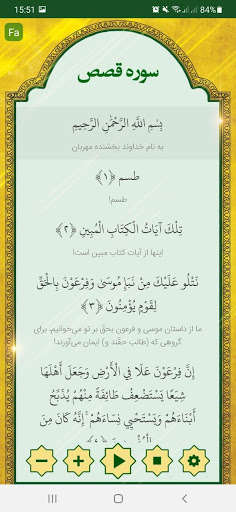 15:51
84%
Fa
سوره قصص
بِسْمِ اللَّهِ الرَّحْمَٰنِ الرَّحِيمِ
به نام خداوند بخشنده مهربان
طسم ﴿١﴾
طسم!
تِلْكَ آيَاتُ الْكِتَابِ الْمُبِينِ ﴿٢﴾
اینها از آیات کتاب مبین است!
نَتْلُو عَلَيْكَ مِنْ نَبَإِ مُوسَىٰ وَفِرْعَوْنَ بِالْحَقِّ
لِقَوْمٍ يُؤْمِنُونَ ﴿٣﴾
ما از داستان موسی و فرعون بحقّ بر تو می‌خوانیم، برای
گروهی که (طالب حقّند و) ایمان می‌آورند!
إِنَّ فِرْعَوْنَ عَلَا فِي الْأَرْضِ وَجَعَلَ أَهْلَهَا
شِيَعًا يَسْتَضْعِفُ طَائِفَةً مِنْهُمْ يُذَبِّحُ
أَبْنَاءَهُمْ وَيَسْتَحْيِي نِسَاءَهُمْ ۚ إِنَّهُ كَانَ مِنَ